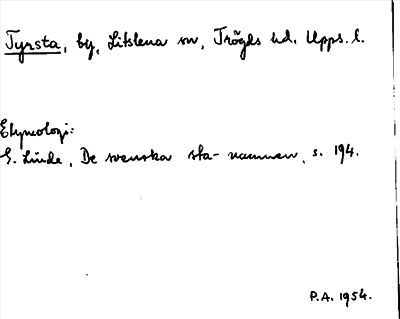 Tyrsta, by, Litslena sn, Trögds hd. Upps. l.
Etymologi:
E. Linde, De svenska sta-namnen, s. 194.
P.A. 1954.